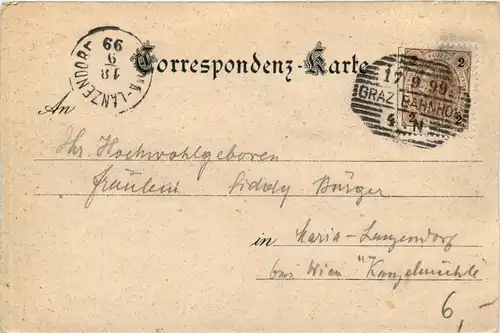 Correspondenz-Karte
18
9
99
LANZENDORF
17 9 99
GRAZ BAHNHO
4 N
2
2
2
An
Ihr Hochwohlgeboren
Fräulein Siddy Bürger
in Maria-Lanzendorf
bei Wien "Kanzelmühle
6,-